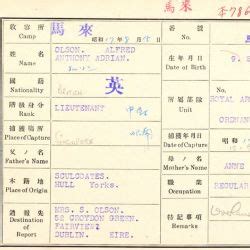 馬來
収容所 Camp 馬來 昭和17年8月15日 番號 No.
姓名 Name OLSON, ALFRED ANTHONY ADRIAN. 生年月日 Date of Birth
國籍 Nationality 英 BRITISH 所屬部隊 Unit ROYAL AR
ORDNAN
階級身分 Rank LIEUTENANT
捕獲場所 Place of Capture 捕獲年月日 Date of Capture 昭和
父ノ名 Father's Name 母ノ名 Mother's Name ANNE
本籍地 Place of Origin SCULCOATES. HULL Yorks. 職業 Occupation REGULAR
通報先 Destination of Report MRS. S. OLSON. 52 CROYDON GREEN. FAIRVIEW? DUBLIN. EIRE. 特記事項 Remarks